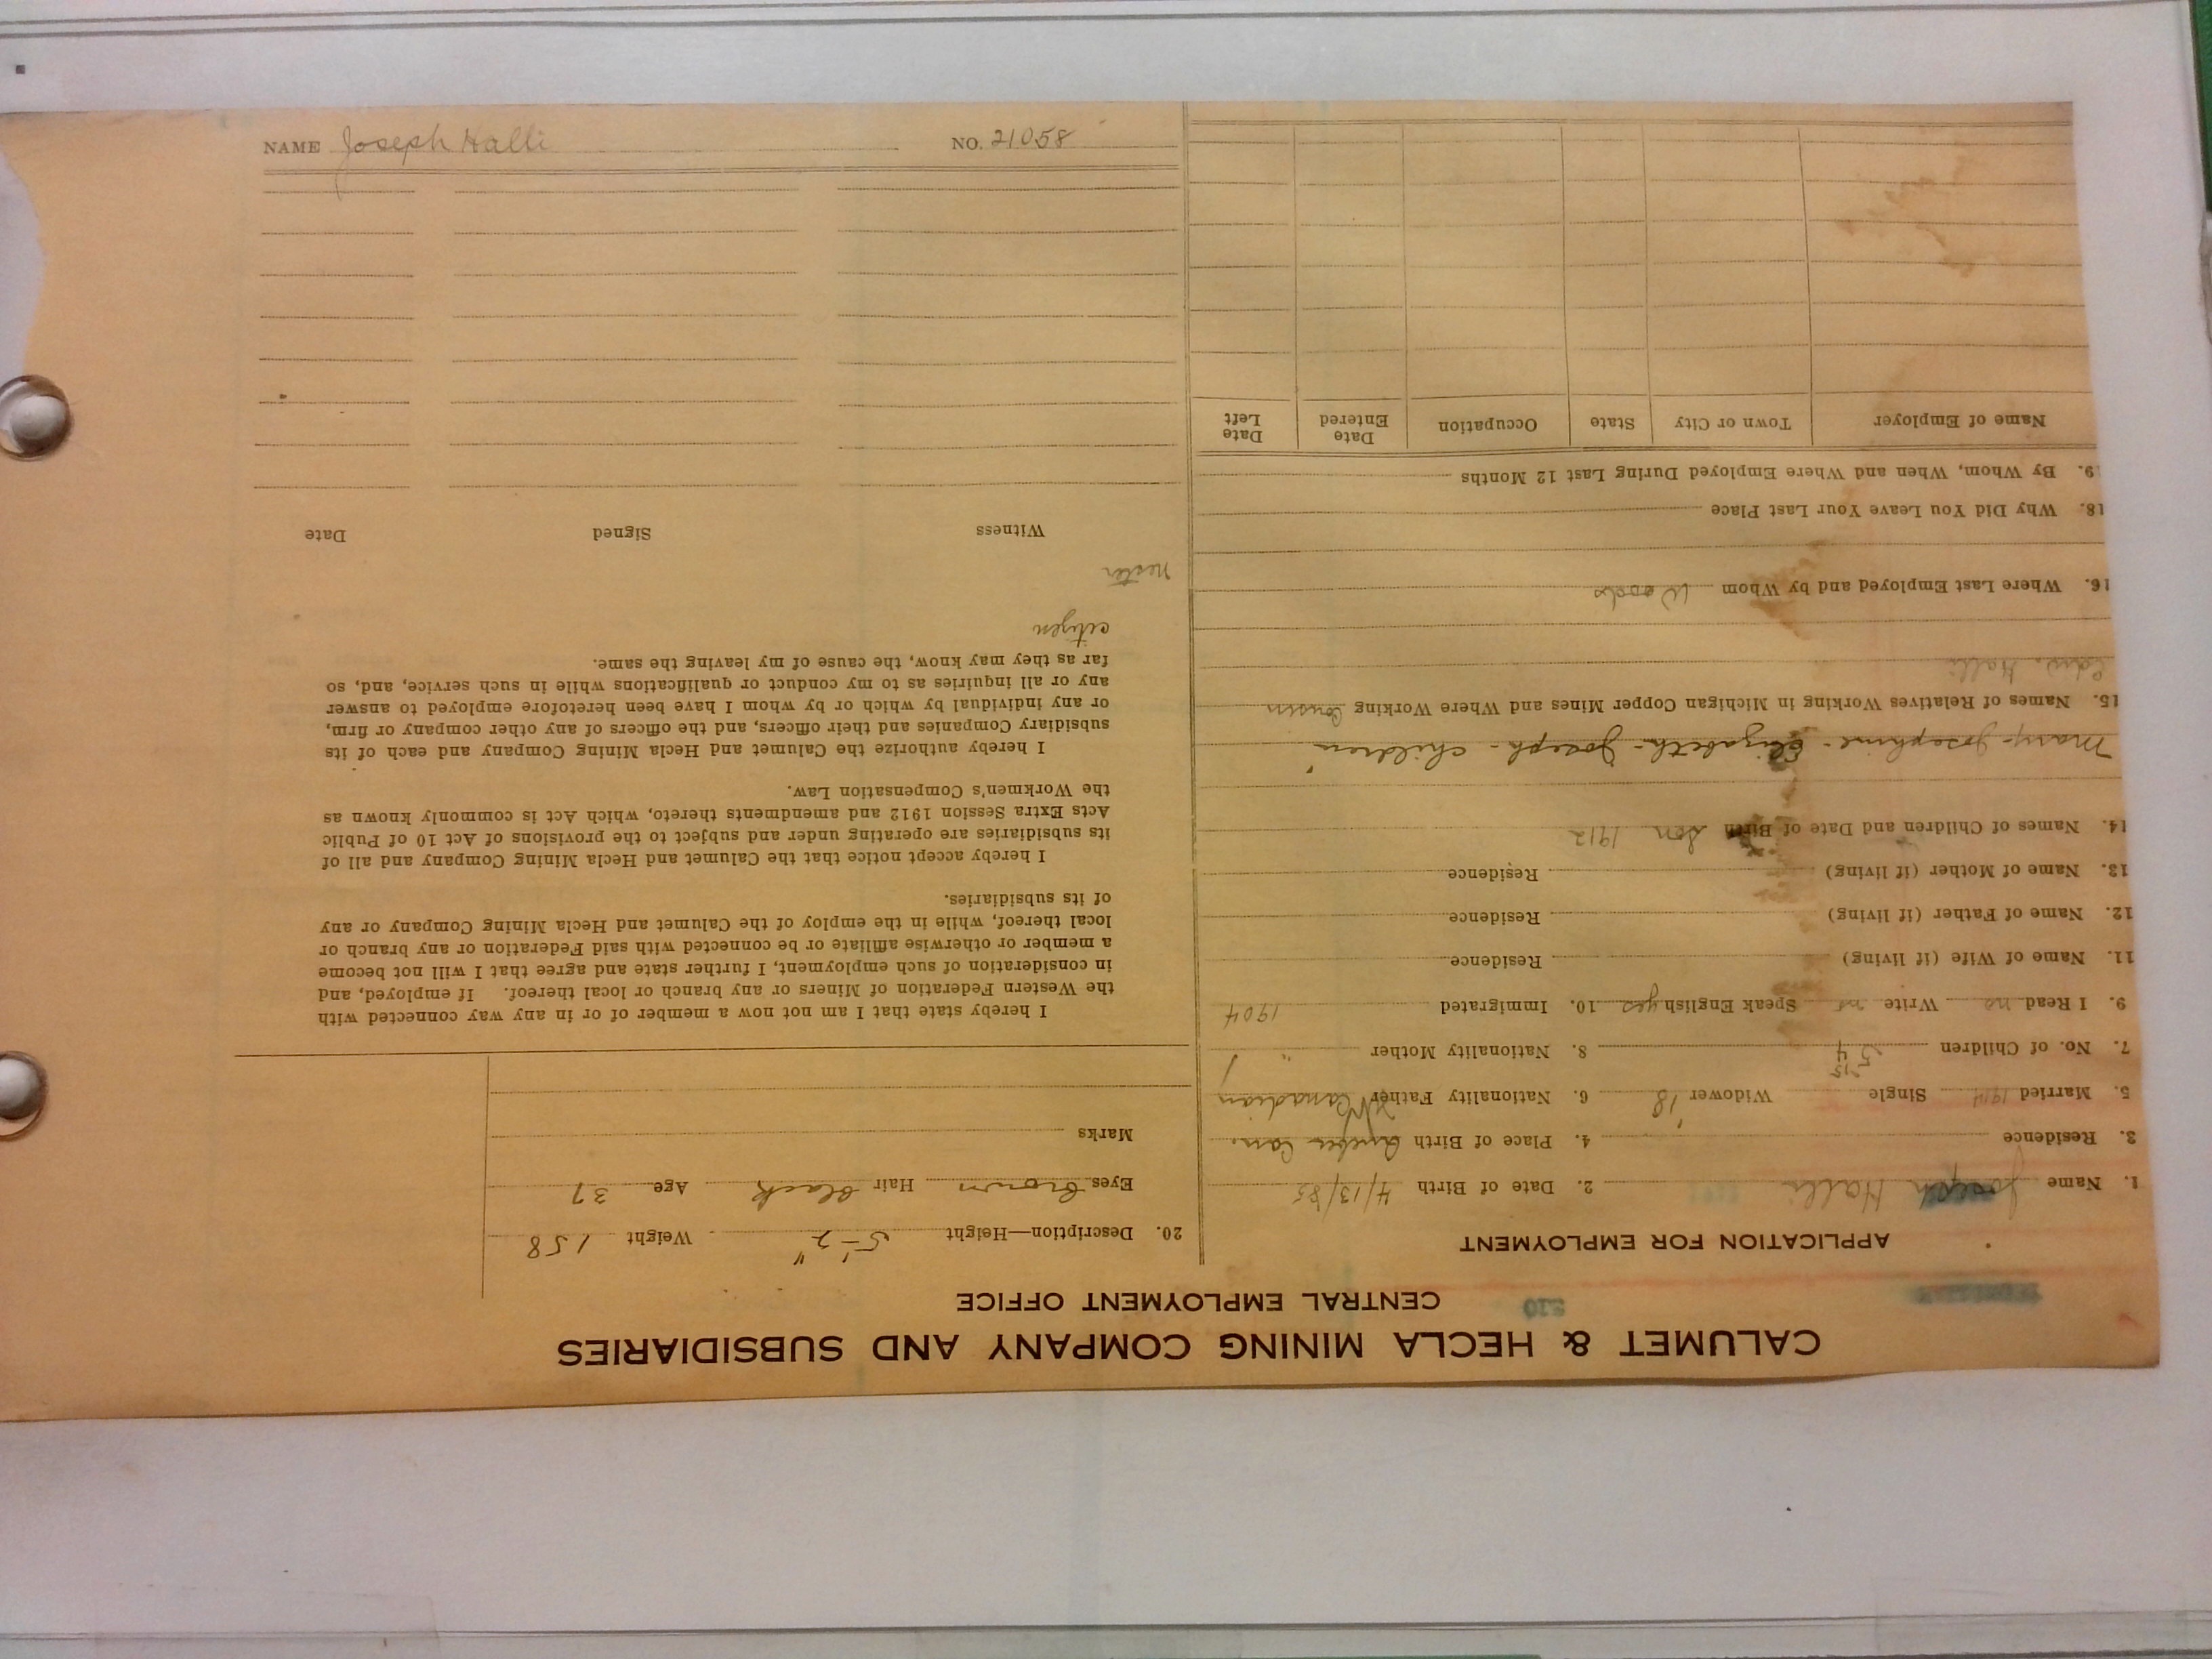 CALUMET & HECLA MINING COMPANY AND SUBSIDIARIES
CENTRAL EMPLOYMENT OFFICE
210
APPLICATION FOR EMPLOYMENT
1. Name Joseph Halli 2. Date of Birth 4/13/85
3. Residence 4. Place of Birth Quebec Can.
5. Married 1914 Single Widower '18 6. Nationality Father Canadian
7. No. of Children 5 4 8. Nationality Mother "
9. I Read no Write no Speak English yes 10. Immigrated 1904
11. Name of Wife (if living) Residence
12. Name of Father (if living) Residence
13. Name of Mother (if living) Residence
14. Names of Children and Date of Birth Son 1912
Mary - Josephine - Elizabeth - Joseph - children
15. Names of Relatives Working in Michigan Copper Mines and Where Working Cousin
Edw. Halli
16. Where Last Employed and by Whom Woods
18. Why Did You Leave Your Last Place
19. By Whom, When and Where Employed During Last 12 Months
Name of Employer Town or City State Occupation Date Entered Date Left
20. Description—Height 5'-2" Weight 158
Eyes Brown Hair Black Age 37
Marks
I hereby state that I am not now a member of or in any way connected with
the Western Federation of Miners or any branch or local thereof. If employed, and
in consideration of such employment, I further state and agree that I will not become
a member or otherwise affiliate or be connected with said Federation or any branch or
local thereof, while in the employ of the Calumet and Hecla Mining Company or any
of its subsidiaries.
I hereby accept notice that the Calumet and Hecla Mining Company and all of
its subsidiaries are operating under and subject to the provisions of Act 10 of Public
Acts Extra Session 1912 and amendments thereto, which Act is commonly known as
the Workmen's Compensation Law.
I hereby authorize the Calumet and Hecla Mining Company and each of its
subsidiary Companies and their officers, and the officers of any other company or firm,
or any individual by which or by whom I have been heretofore employed to answer
any or all inquiries as to my conduct or qualifications while in such service, and, so
far as they may know, the cause of my leaving the same.
citizen
Nester
Witness Signed Date
NAME Joseph Halli NO. 21058